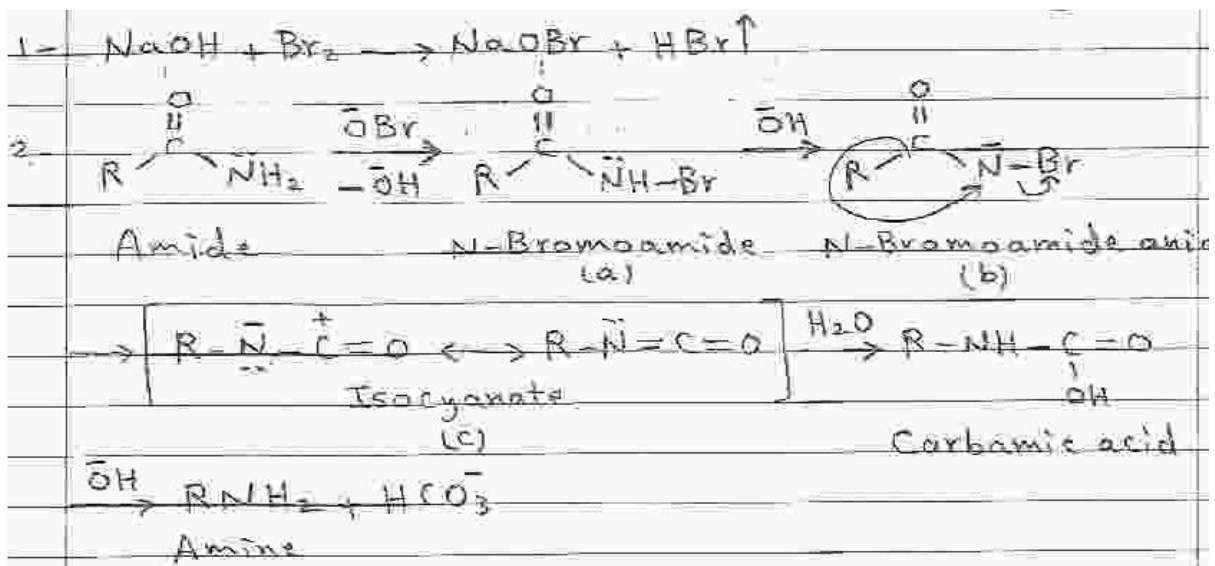 1- NaOH + Br₂ → NaOBr + HBr↑
O O O
|| || ||
2- R C N̈H₂ ŌBr → -ŌH R C N̈H-Br ŌH → R C N̄-Br
Amide N-Bromoamide N-Bromoamide anio
(a) (b)
→ [R-N̄-C⁺=O ↔ R-N̈=C=O] H₂O → R-NH-C=O
Isocyanate OH
(c) Carbamic acid
ŌH → RNH₂ + HCO₃⁻
Amine